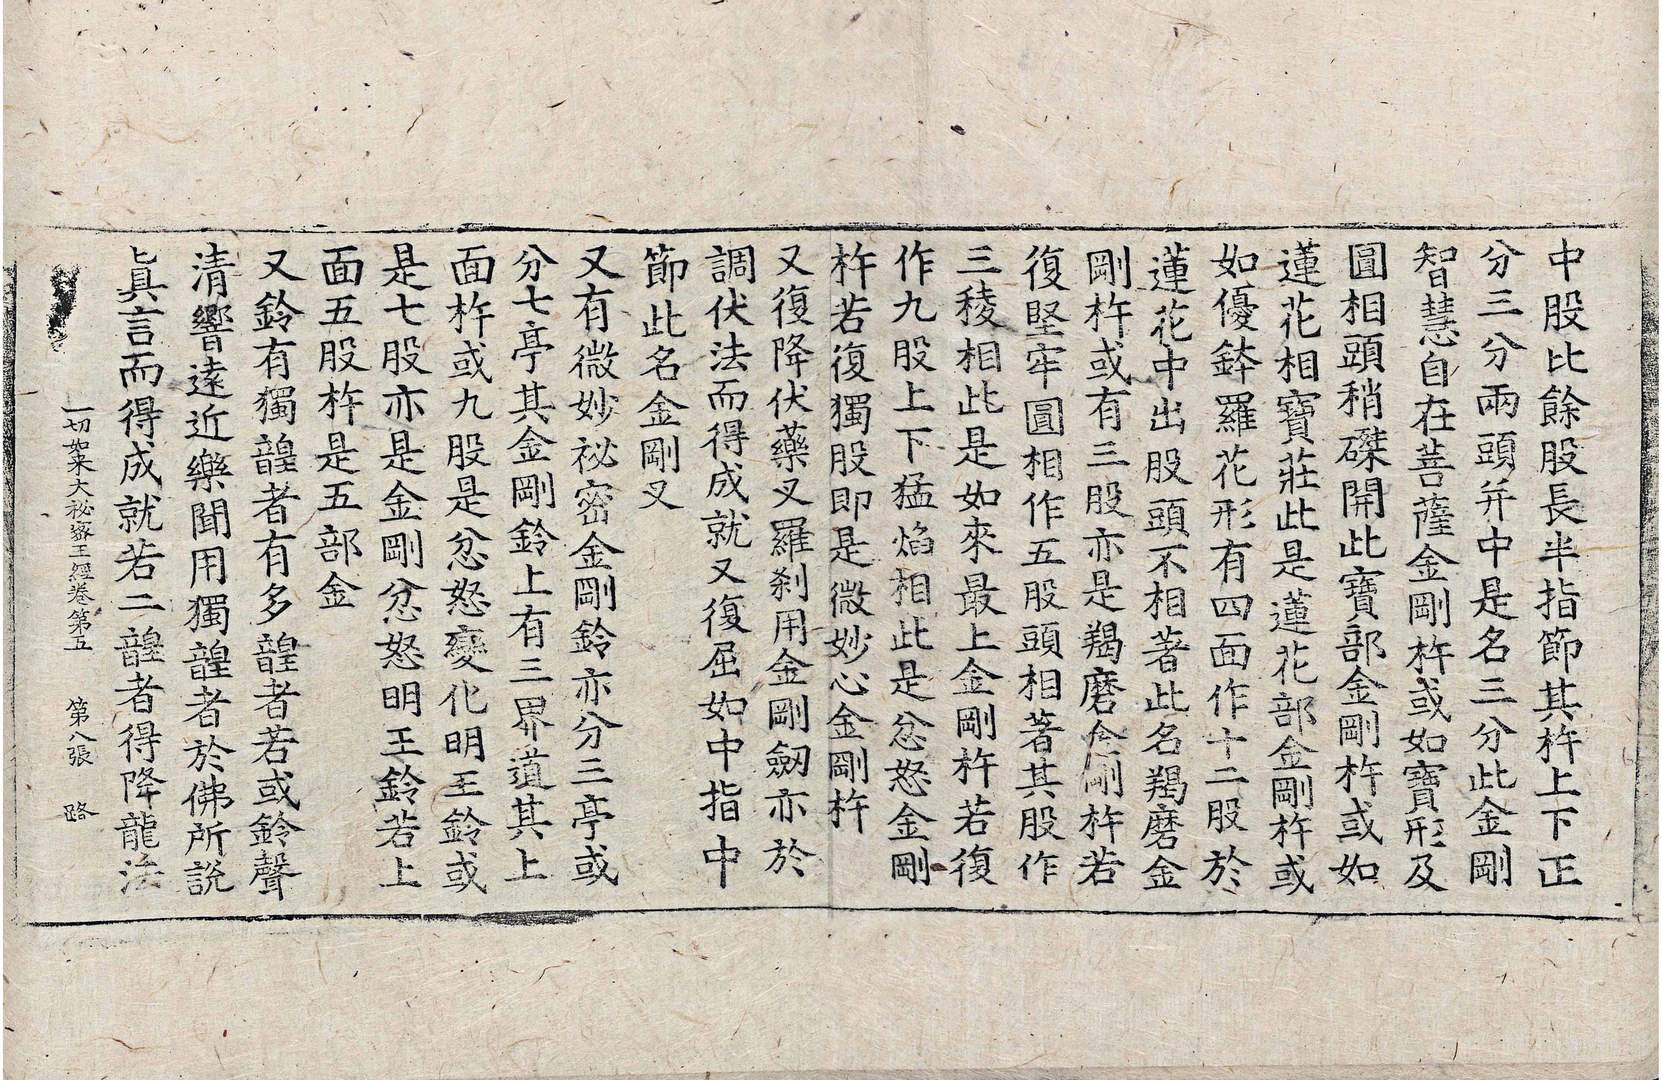 中股比餘股長半指節其杵上下正
分三分兩頭并中是名三分此金剛
智慧自在菩薩金剛杵或如寶形及
圓相頭稍磔開此寶部金剛杵或如
蓮花相寶莊此是蓮花部金剛杵或
如優鉢羅花形有四面作十二股於
蓮花中出股頭不相著此名羯磨金
剛杵或有三股亦是羯磨金剛杵若
復堅牢圓相作五股頭相著其股作
三稜相此是如來最上金剛杵若復
作九股上下猛焰相此是忿怒金剛
杵若復獨股即是微妙心金剛杵
又復降伏藥叉羅刹用金剛劒亦於
調伏法而得成就又復屈如中指中
節此名金剛叉
又有微妙祕密金剛鈴亦分三亭或
分七亭其金剛鈴上有三界道其上
面杵或九股是忿怒變化明王鈴或
是七股亦是金剛忿怒明王鈴若上
面五股杵是五部金
又鈴有獨韹者有多韹者若或鈴聲
清響遠近樂聞用獨韹者於佛所說
眞言而得成就若二韹者得降龍法
一切如来大秘密王經卷第五 第八張 路